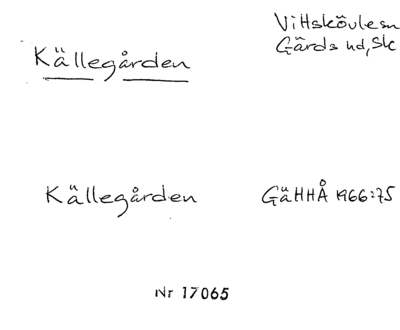 Vittskövle sn
Gärds hd, Sk
Källegården
Källegården GäHHÅ 1966:75
Nr 17065